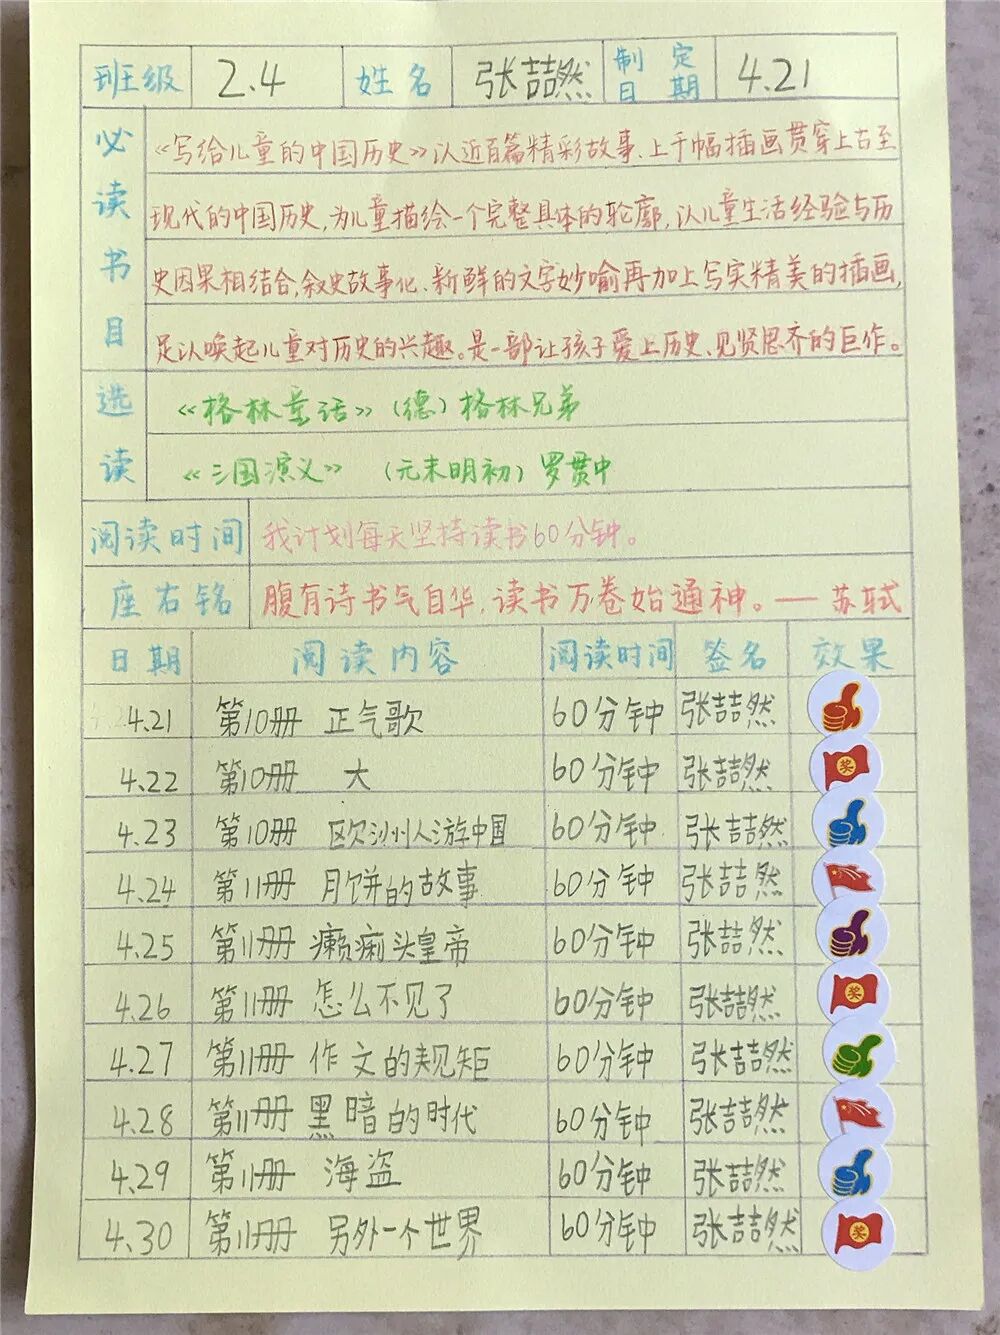 班级 2.4 姓名 张喆然 制定日期 4.21
必读书目
《写给儿童的中国历史》以近百篇精彩故事、上千幅插画贯穿上古至
现代的中国历史,为儿童描绘一个完整具体的轮廓,以儿童生活经验与历
史因果相结合,叙史故事化、新鲜的文字妙喻再加上写实精美的插画,
足以唤起儿童对历史的兴趣。是一部让孩子爱上历史、见贤思齐的巨作。
选读
《格林童话》(德)格林兄弟
《三国演义》 (元末明初)罗贯中
阅读时间 我计划每天坚持读书60分钟。
座右铭 腹有诗书气自华,读书万卷始通神。——苏轼
日期 阅读内容 阅读时间 签名 效果
4.21 第10册 正气歌 60分钟 张喆然
4.22 第10册 大 60分钟 张喆然 奖
4.23 第10册 欧洲人游中国 60分钟 张喆然
4.24 第11册 月饼的故事 60分钟 张喆然
4.25 第11册 癞痢头皇帝 60分钟 张喆然
4.26 第11册 怎么不见了 60分钟 张喆然 奖
4.27 第11册 作文的规矩 60分钟 张喆然
4.28 第11册 黑暗的时代 60分钟 张喆然
4.29 第11册 海盗 60分钟 张喆然
4.30 第11册 另外一个世界 60分钟 张喆然 奖